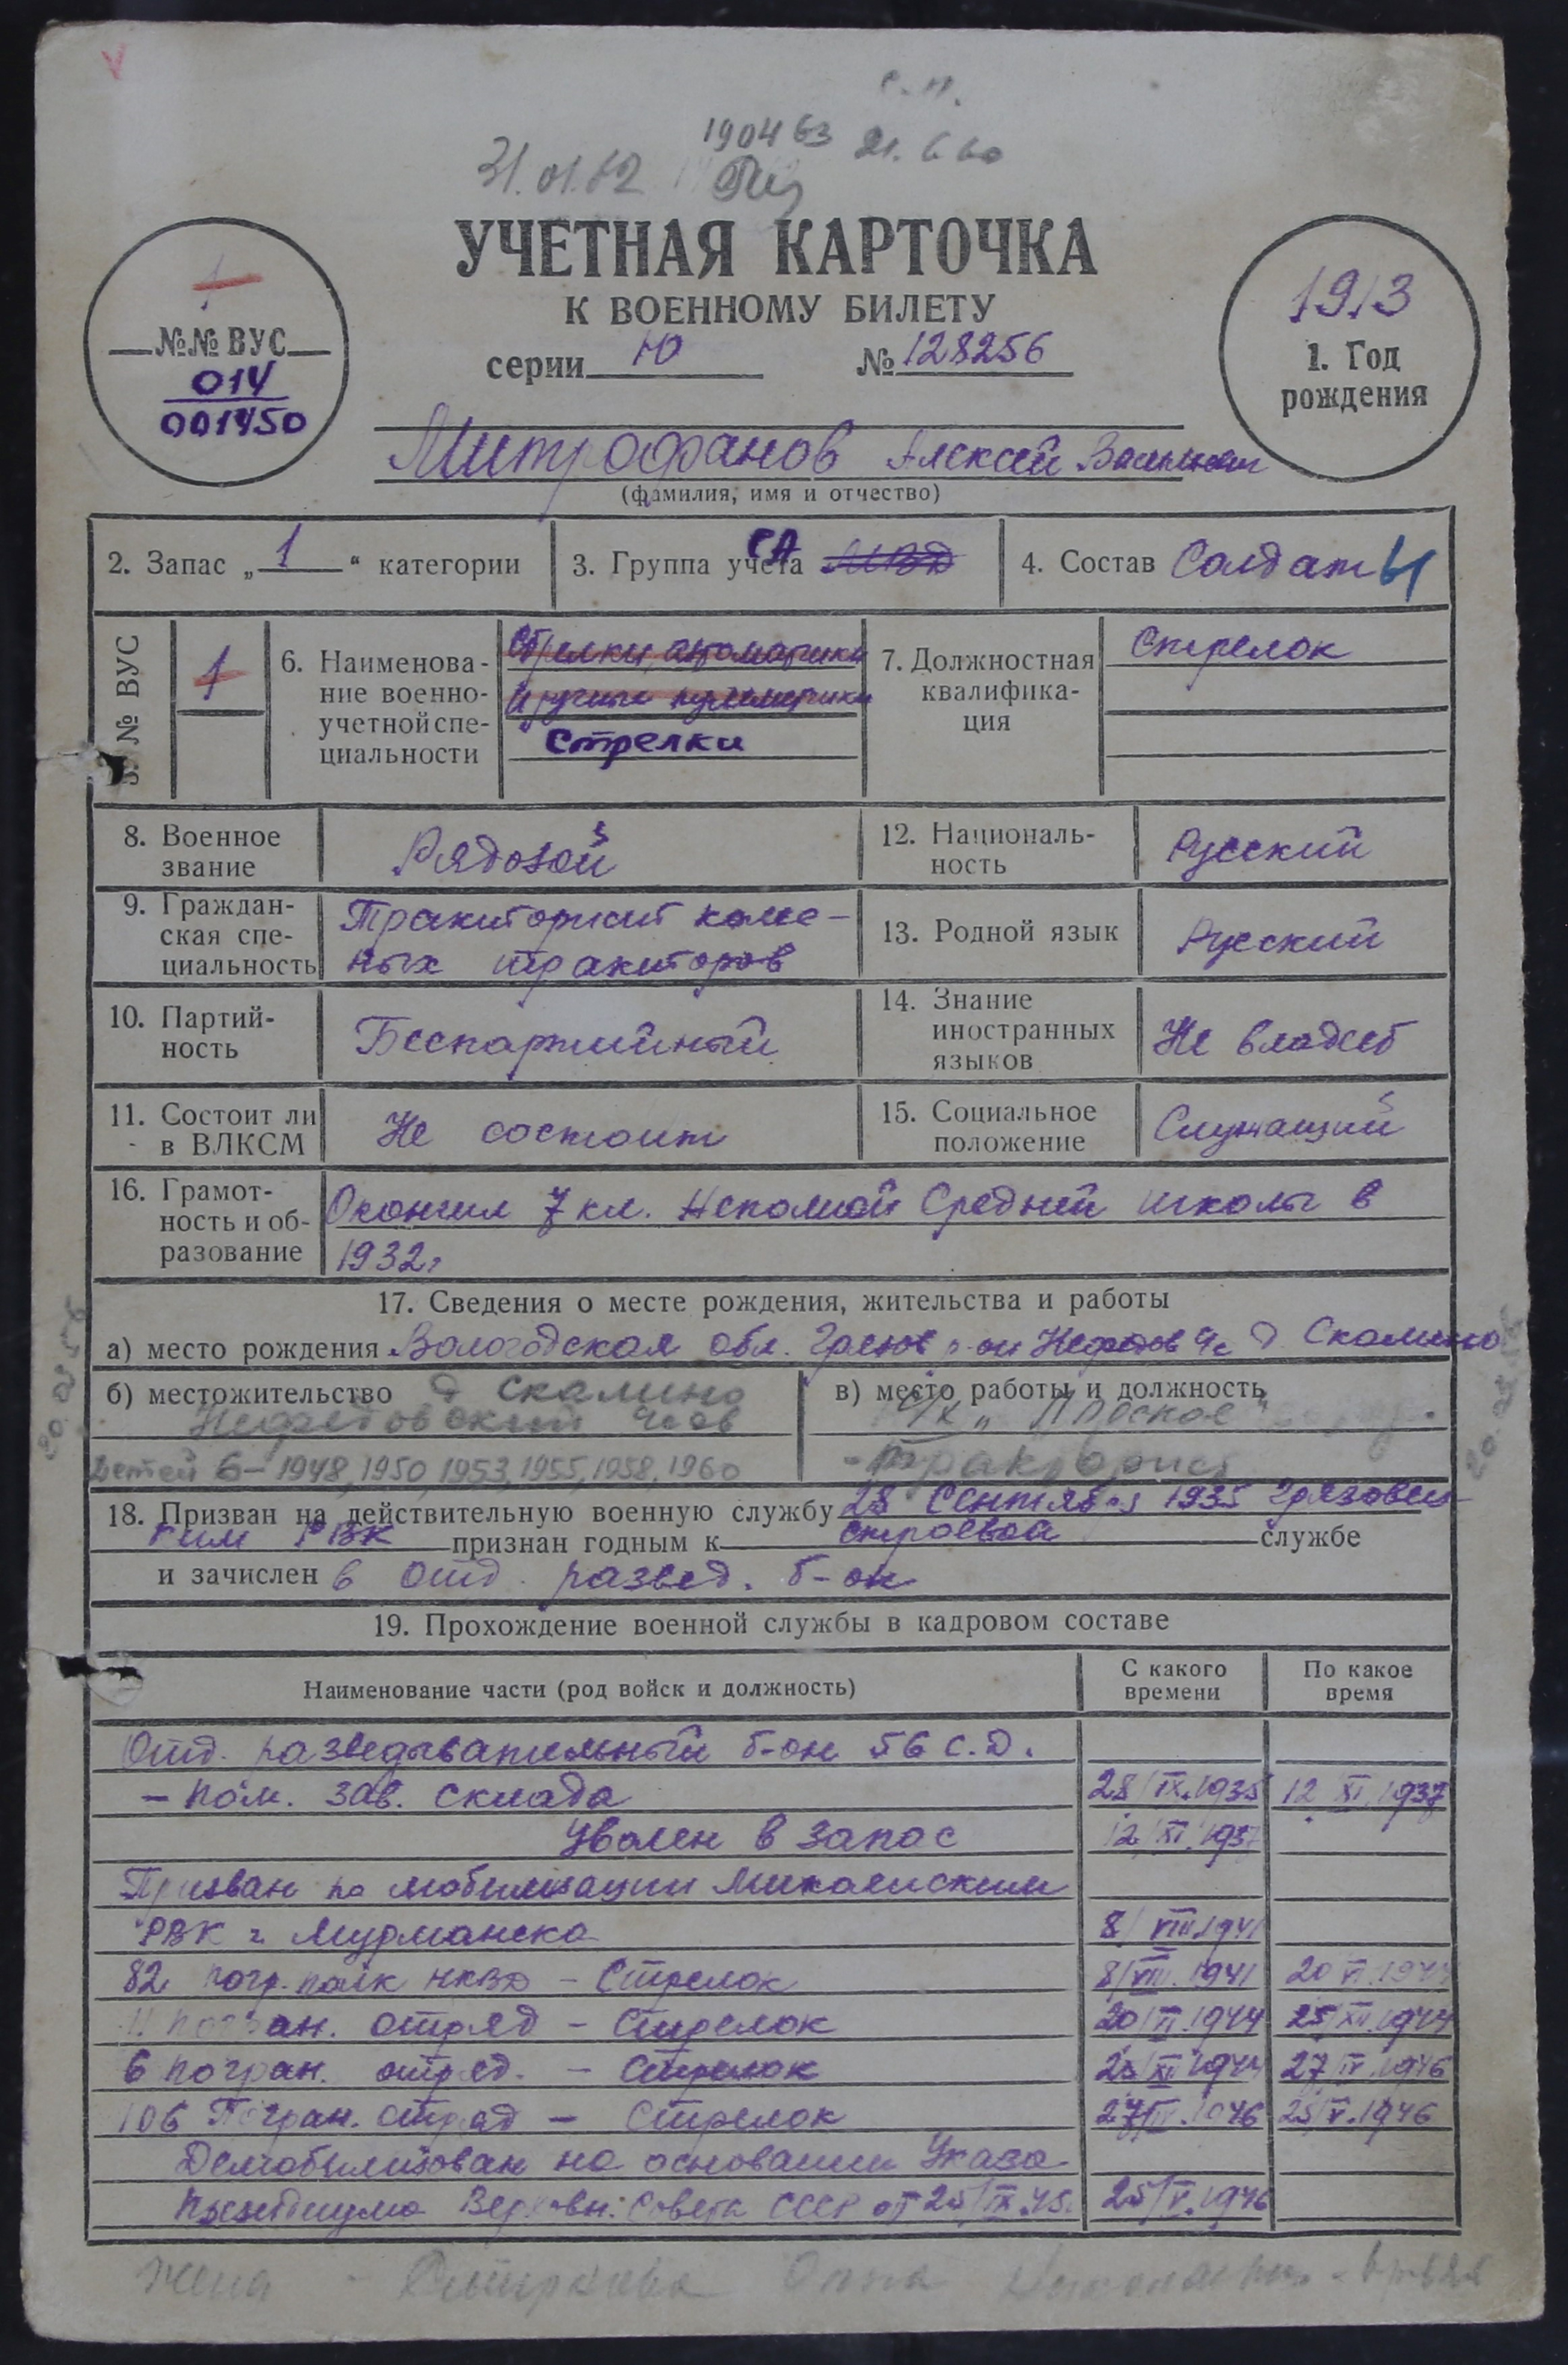 190463
31.01.62
УЧЕТНАЯ КАРТОЧКА
К ВОЕННОМУ БИЛЕТУ
серии Ю № 128256
1
№№ ВУС
014
001450
1913
1. Год
рождения
Митрофанов Алексей
(фамилия, имя и отчество)
2. Запас „ 1 “ категории
3. Группа учета СА МВД
4. Состав Солдаты
5. № ВУС
1
6. Наименова-
ние военно-
учетной спе-
циальности
Стрелки, автоматчики
и ручные пулеметчики
Стрелки
7. Должностная
квалифика-
ция
Стрелок
8. Военное
звание
Рядовой
12. Националь-
ность
Русский
9. Граждан-
ская спе-
циальность
Тракторист колес-
ных тракторов
13. Родной язык
Русский
10. Партий-
ность
Беспартийный
14. Знание
иностранных
языков
Не владеет
11. Состоит ли
в ВЛКСМ
Не состоит
15. Социальное
положение
Служащий
16. Грамот-
ность и об-
разование
Окончил 7 кл. Неполной Средней школы в
1932г
17. Сведения о месте рождения, жительства и работы
а) место рождения Вологодская обл. Грязов р-он Нефедов д Скалино
б) местожительство д Скалино
Нефедовский
детей 6 – 1948, 1950, 1953, 1955, 1958, 1960
в) место работы и должность
тракторист
18. Призван на действительную военную службу 28 Сентября 1935 Грязовец-
ким РВК признан годным к строевой службе
и зачислен в отд. развед. б-он
19. Прохождение военной службы в кадровом составе
Наименование части (род войск и должность)
С какого
времени
По какое
время
Отд. разведывательный б-он 56 с.д.
– пом. зав. склада 28/IX.1935 12 XI.1937
Уволен в запас 12/XI.1937
Призван по мобилизации
РВК г. Мурманска 8/VIII.1941
82 погр. полк НКВД – Стрелок 8/VIII.1941 20 VI.1944
погран. отряд – Стрелок 20/VI.1944 25/XII.1944
6 погран. отряд. – Стрелок 1944 27/IV.1946
106 Погран. отряд – Стрелок 27/IV.1946 25/V.1946
Демобилизован на основании Указа
Президиума Верховн. Совета СССР от 25/IX.45. 25/V.1946
Жена – Анна